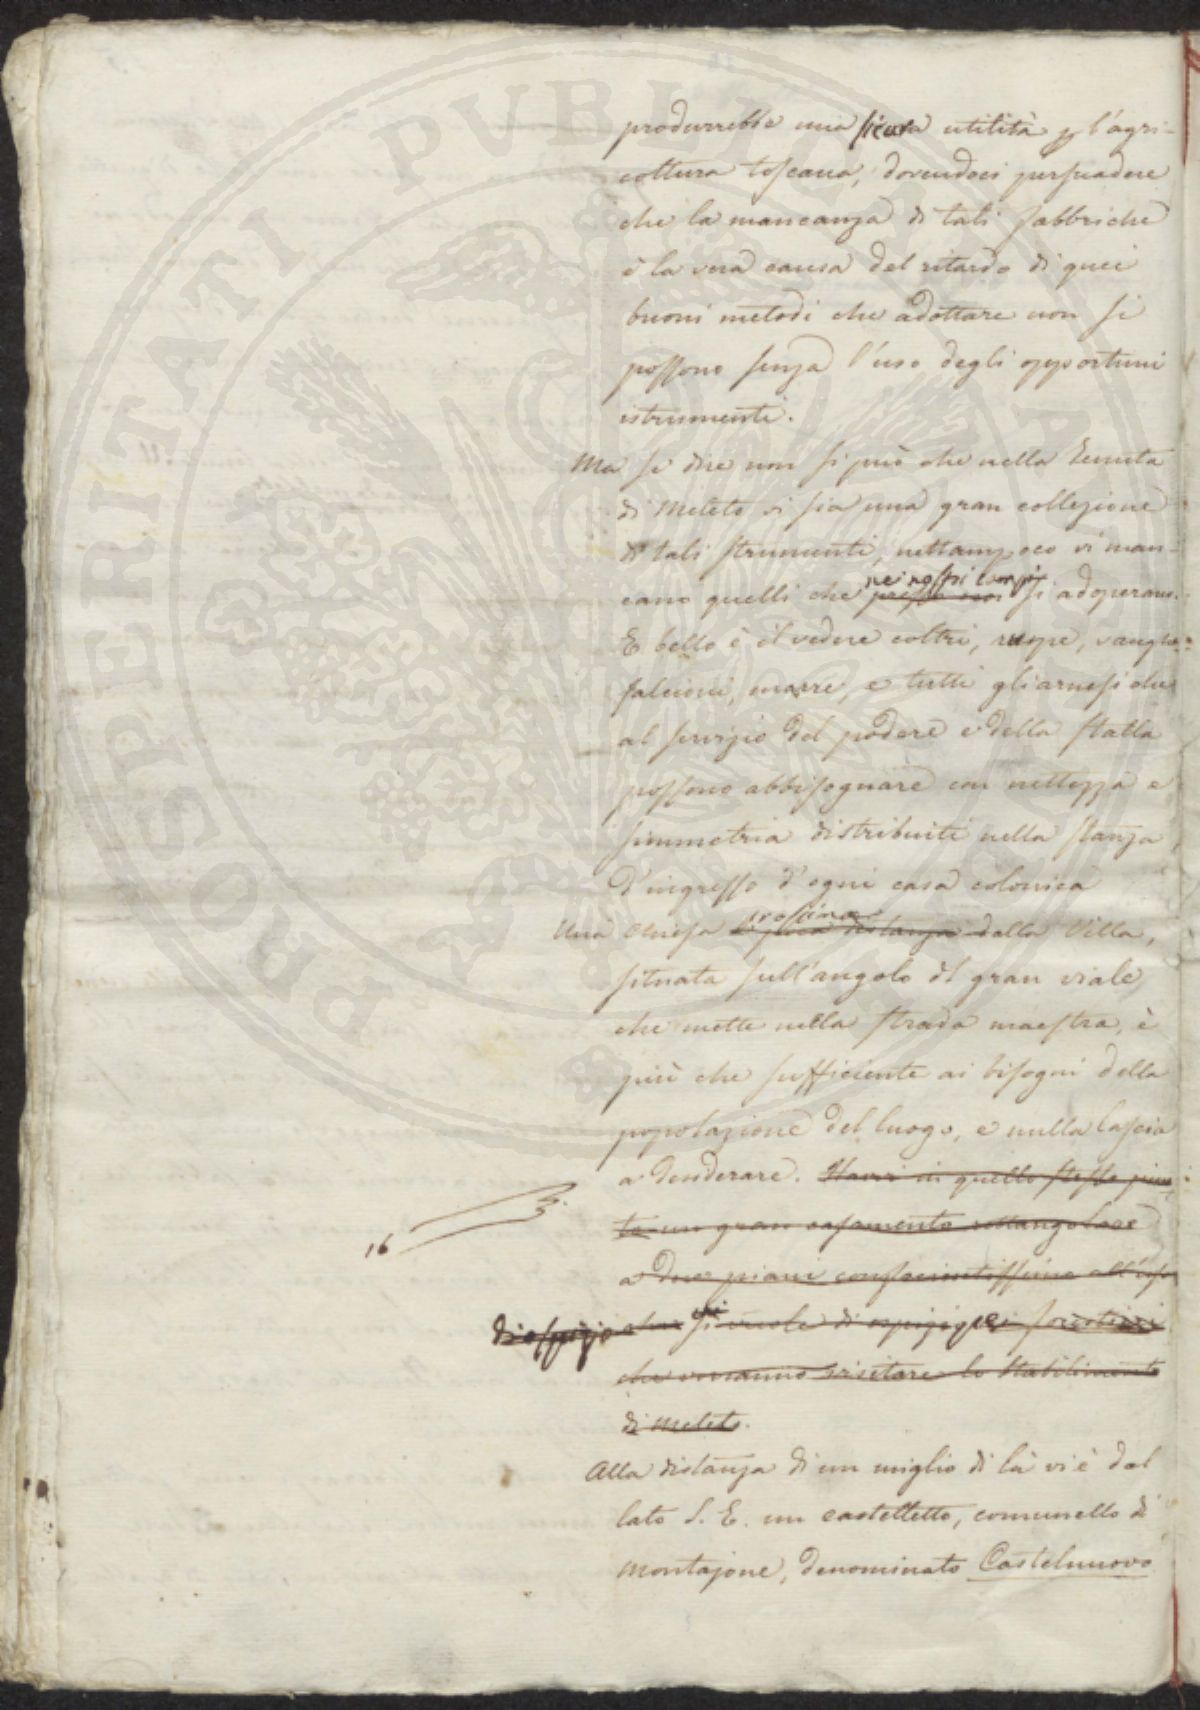 produrrebbe una sicura utilità p l'agri-
coltura toscana, dovendoci persuadere
che la mancanza di tali fabbriche
è la vera causa del ritardo di quei
buoni metodi che adottare non si
possono senza l'uso degli opportuni
istrumenti.
Ma se dire non si può che nella Tenuta
di Meleto vi sia una gran collezione
di tali strumenti, nettampoco vi man-
cano quelli che nei nostri campi si adoperano.
E bello è il vedere coltri, ruspe, vanghe
falcioni, marre, e tutti gli arnesi che
al servizio del podere e della stalla
possono abbisognare con nettezza e
simmetria distribuiti nella stanza
d'ingresso d'ogni casa colonica
Una Chiesa prossima
a poca distanza dalla Villa,
situata sull'angolo del gran viale
che mette nella strada maestra, è
più che sufficiente ai bisogni della
popolazione del luogo, e nulla lascia
a desiderare. Havvi in quello stesso pun-
to un gran casamento rettangolare
a due piani confacentissimo all'uso
16
di ospizio che vi si vuole di ospizio pei forestieri
che verranno visitare lo Stabilimento
di Meleto.
Alla distanza di un miglio di là vi è dal
lato S. E. un castelletto, comunello di
Montajone, denominato Castelnuovo
PROSPERITATI PUBLICAE AU